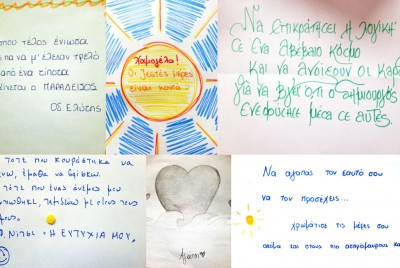 που τέλος ένιωσα
κι ας να μ' έλεγαν τρελό
από ένα τίποτα
γίνεται ο ΠΑΡΑΔΕΙΣΟΣ
Οδ. Ελύτης
Χαμογέλα!
Οι ζεστές μέρες
είναι κοντά
Να επικρατήσει η λογική
σε ένα αβέβαιο κόσμο
και να ανοίξουν οι καρ
για να βγει ότι ο δημιουργός
ενεφύσησε μέσα σε αυτές.
τότε που κουράστηκα να
νω, έμαθα να βρίσκω.
τότε που ένας άνεμος μου
ντιώθηκε, ταξιδεύω με όλους τους
μους.
Νίτσε "Η ΕΥΤΥΧΙΑ ΜΟΥ"
Αγάπη
Να αγαπάς τον εαυτό σου
να τον προσέχεις...
χρωμάτισε τις μέρες σου
ακόμα και στους πιο